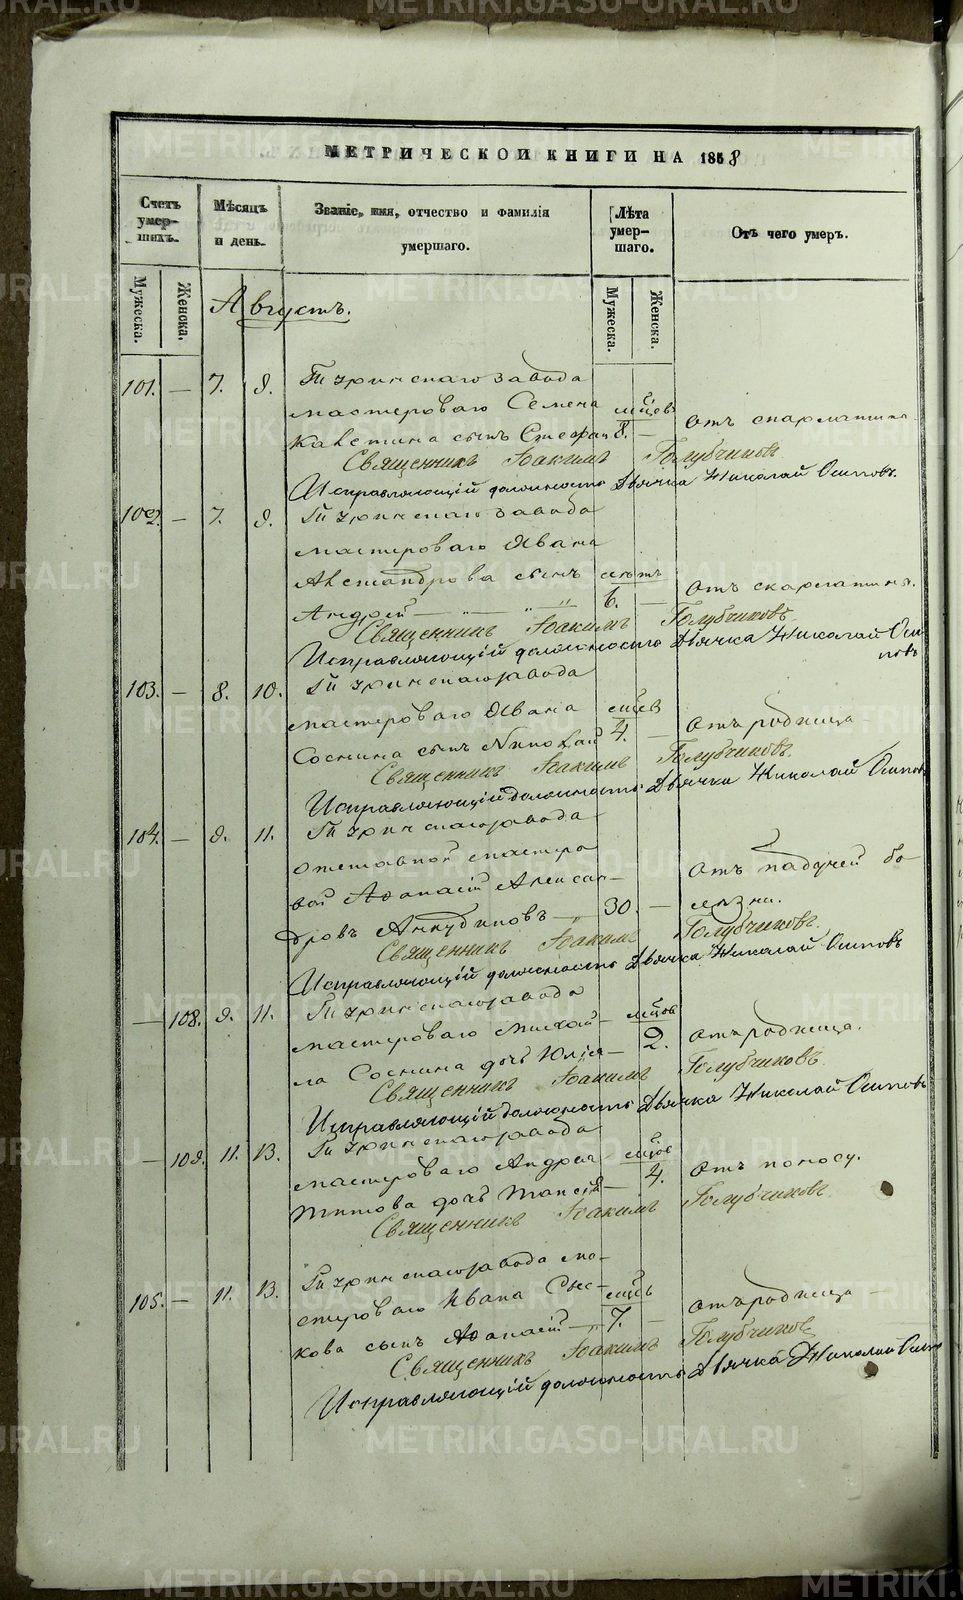 МЕТРИЧЕСКОЙ КНИГИ НА 1858
Счетъ умер-шихъ.
Мѣсяцъ и день.
Званіе, имя, отчество и фамилія умершаго.
Лѣта умер-шаго.
Отъ чего умеръ.
Мужеска.
Женска.
Мужеска.
Женска.
Августъ.
101. — 7. 9. Туринскаго завода
мастероваго Семена мѣсяц
сынъ Стефан 8. — отъ скарлатины
Священникъ Іоакимъ Голубчиковъ
Исправляющій должность Дьячка Николай Осиповъ.
102. — 7. 9. Туринскаго завода
мастероваго Ивана
Александрова сынъ лѣтъ
Андрей — " — " — 6. — отъ скарлатины.
Священникъ Іоакимъ Голубчиковъ.
Исправляющій должность Дьячка Николай Оси-
повъ
103. — 8. 10. Туринскаго завода
мастероваго Ивана мѣсяц
Соснина сынъ Николай 4. — отъ родимца
Священникъ Іоакимъ Голубчиковъ.
Исправляющій должность Дьячка Николай Осиповъ
104. — 9. 11. Туринскаго завода
отставной мастеро
вой Афанасій Алексан-
дровъ Анкудиновъ — 30. — отъ падучей бо-
лѣзни.
Священникъ Іоакимъ Голубчиковъ.
Исправляющій должность Дьячка Николай Осиповъ
— 108. 9. 11. Туринскаго завода
мастероваго Михай- мѣсяц
ла Соснина дочь Юлія — 2. отъ родимца.
Священникъ Іоакимъ Голубчиковъ
Исправляющій должность Дьячка Николай Осиповъ
— 109. 11. 13. Туринскаго завода
мастероваго Андрея мѣсяц
Титова дочь Таисія — 4. отъ поносу.
Священникъ Іоакимъ Голубчиковъ
105. — 11. 13. Туринскаго завода ма-
стероваго Ивана Сыс- мѣсяц
кова сынъ Афанасій — 7. — отъ родимца —
Священникъ Іоакимъ Голубчиковъ
Исправляющій должность Дьячка Николай Осиповъ
METRIKI.GASO-URAL.RU